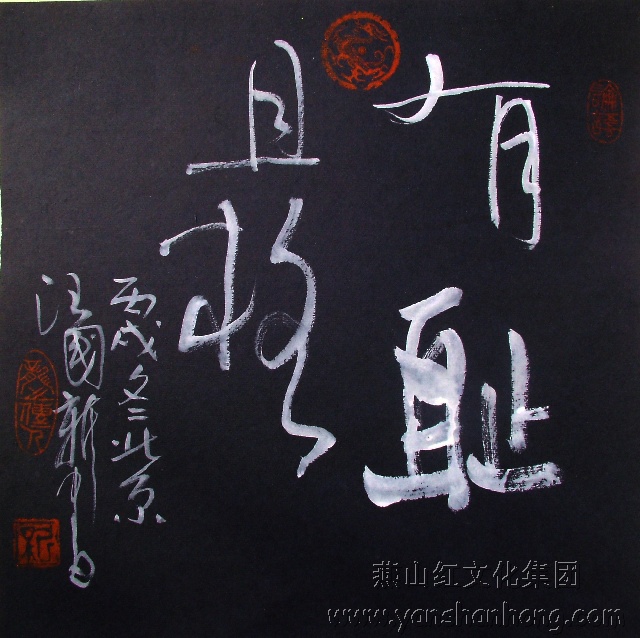 有耻
且格
丙戌冬北京
汪國新
燕山红文化集团
www.yanshanhong.com